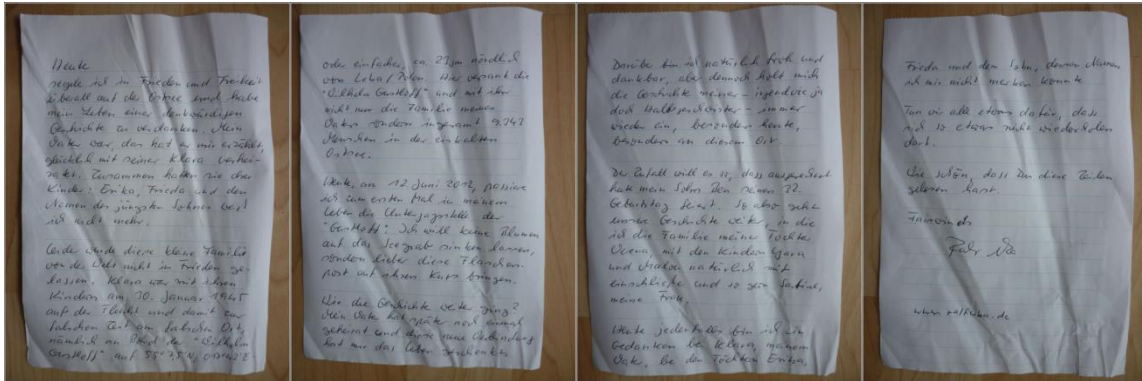 Heute
segle ich in Frieden und Freiheit
überall auf der Ostsee und habe
mein Leben einer denkwürdigen
Geschichte zu verdanken. Mein
Vater war, das hat er mir erzählt,
glücklich mit seiner Klara verhei-
ratet. Zusammen hatten sie drei
Kinder: Erika, Frieda und den
Namen des jüngsten Sohnes weiß
ich nicht mehr.
Leider wurde diese kleine Familie
von der Welt nicht in Frieden ge-
lassen. Klara war mit ihren
Kindern am 30. Januar 1945
auf der Flucht und damit zur
falschen Zeit am falschen Ort,
nämlich an Bord der "Wilhelm
Gustloff" auf 55° 7,5'N,
oder einfacher, ca. 23 sm nördlich
von Leba/Polen. Hier versank die
"Wilhelm Gustloff" und mit ihr
nicht nur die Familie meines
Vaters sondern insgesamt 9.343
Menschen in der eiskalten
Ostsee.
Heute, am 12. Juni 2012, passiere
ich zum ersten Mal in meinem
Leben die Untergangsstelle der
"Gustloff". Ich will keine Blumen
auf das Seegrab sinken lassen,
sondern lieber diese Flaschen-
post auf ihren Kurs bringen.
Wie die Geschichte weiter ging?
Mein Vater hat später noch einmal
geheiratet und diese neue Verbindung
hat mir das Leben geschenkt.
Darüber bin ich natürlich froh und
dankbar, aber dennoch holt mich
die Geschichte meiner - irgendwie ja
doch Halbgeschwister - immer
wieder ein, besonders heute,
besonders an diesem Ort.
Der Zufall will es so, dass ausgerechnet
heute mein Sohn Ben seinen 22.
Geburtstag feiert. So also geht
unsere Geschichte weiter, in die
ich die Familie meiner Tochter
mit den Kindern
und natürlich mit
einschließe und so
meine Frau.
Heute jedenfalls bin ich in
Gedanken bei Klara, meinem
Vater, bei den Töchtern Erika,
Frieda und dem Sohn, dessen Namen
ich mir nicht merken konnte
Tun wir alle etwas dafür, dass
sich so etwas nicht wiederholen
darf.
Wie schön, dass Du diese Zeilen
gelesen hast.
Fairwinds